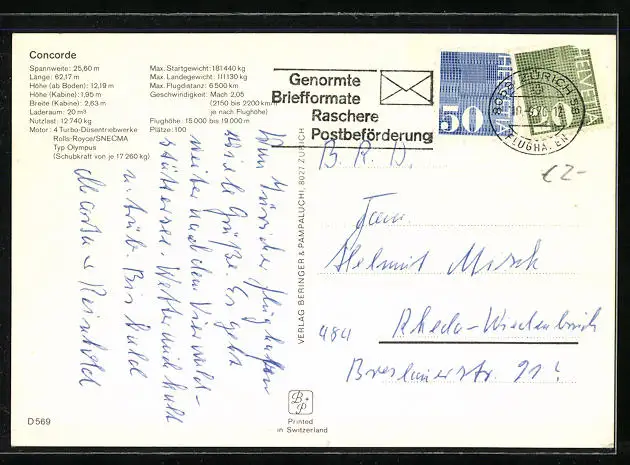 Concorde
Spannweite: 25,60 m
Länge: 62,17 m
Höhe (ab Boden): 12,19 m
Höhe (Kabine): 1,95 m
Breite (Kabine): 2,63 m
Laderaum: 20 m³
Nutzlast: 12 740 kg
Motor: 4 Turbo-Düsentriebwerke
Rolls-Royce/SNECMA
Typ Olympus
(Schubkraft von je 17 260 kg)
Max. Startgewicht: 181 440 kg
Max. Landegewicht: 111 130 kg
Max. Flugdistanz: 6 500 km
Geschwindigkeit: Mach 2,05
(2150 bis 2200 km/h
je nach Flughöhe)
Flughöhe: 15 000 bis 19 000 m
Plätze: 100
Genormte
Briefformate
Raschere
Postbeförderung
50 HELVETIA
HELVETIA
8058 ZÜRICH 58
FLUGHAFEN
Vom Züricher Flughafen
viele Grüße. Es geht
weiter nach dem Vierwald-
stättersee. Wetter noch kalt
u. trüb. Bis bald
Martha u Reinhold
VERLAG BERINGER & PAMPALUCHI, 8027 ZÜRICH
B. R. D.
€2-
Helmut
484 Rheda-Wiedenbrück
Breslauerstr. 91!
B P
Printed
in Switzerland
D 569